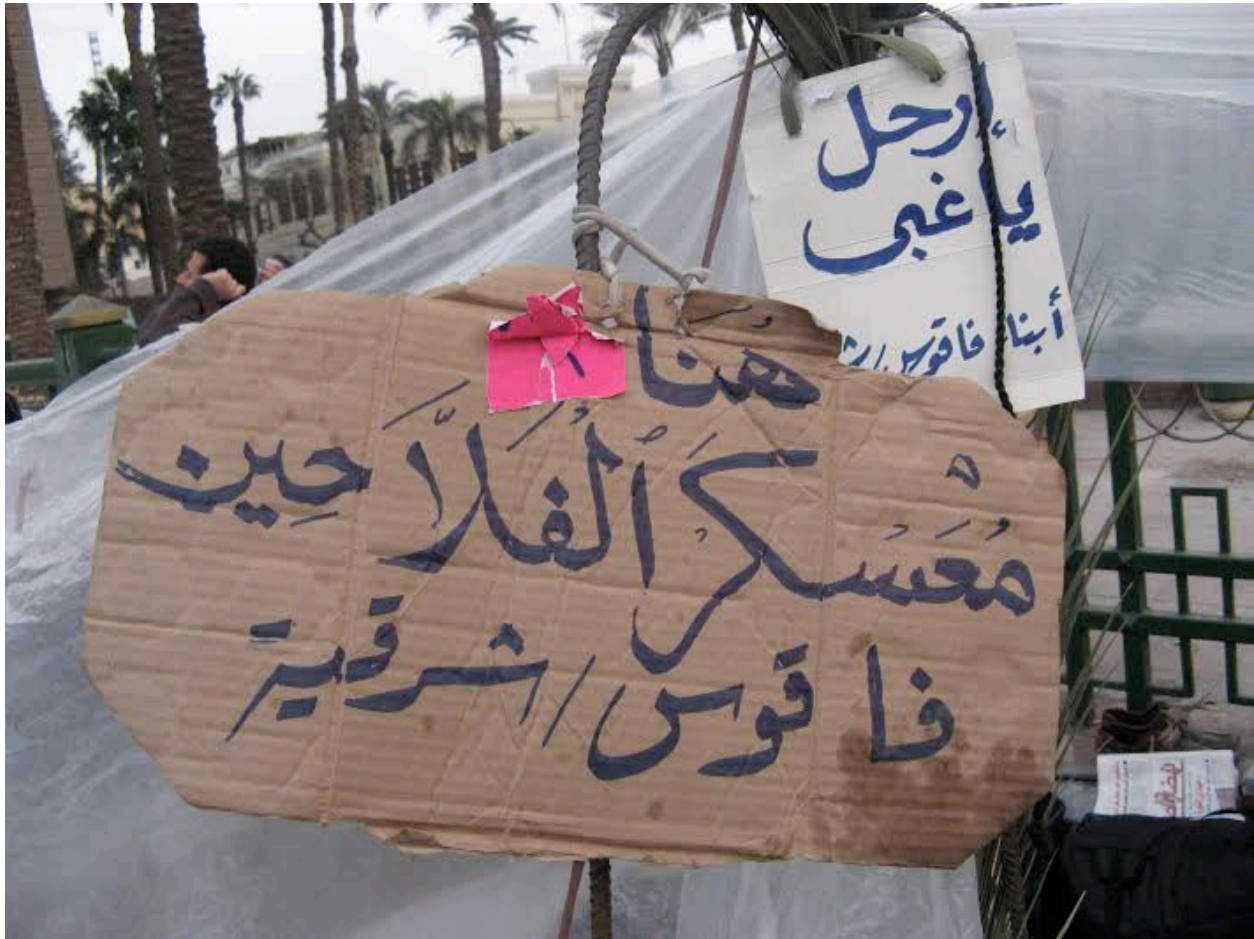 إرحل
يا غبى
أبناء فاقوس/ش
هُنَا
مُعَسْكَرْ ٱلفَلاَّحِين
فاقوس/شرقية